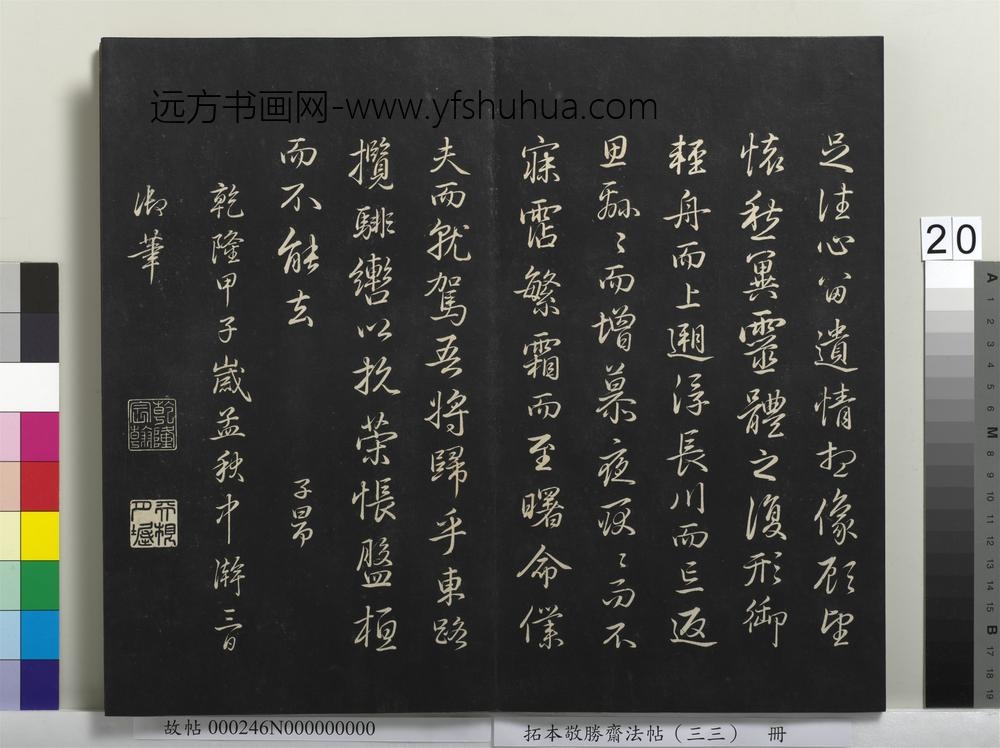 远方书画网-www.yfshuhua.com
足往心留遺情想像顧望
懷愁冀靈體之復形御
輕舟而上遡浮長川而忘返
思綿〻而增慕夜耿〻而不
寐霑繁霜而至曙命僕
夫而就駕吾將歸乎東路
攬騑轡以抗策悵盤桓
而不能去
子昂
乾隆甲子歲孟秋中澣三日
御筆
乾隆宸翰
20
A 1 2 3 4 5 6 M 8 9 10 11 12 13 14 15 B 17 18 19
故帖 000246N000000000
拓本敬勝齋法帖（三三） 冊